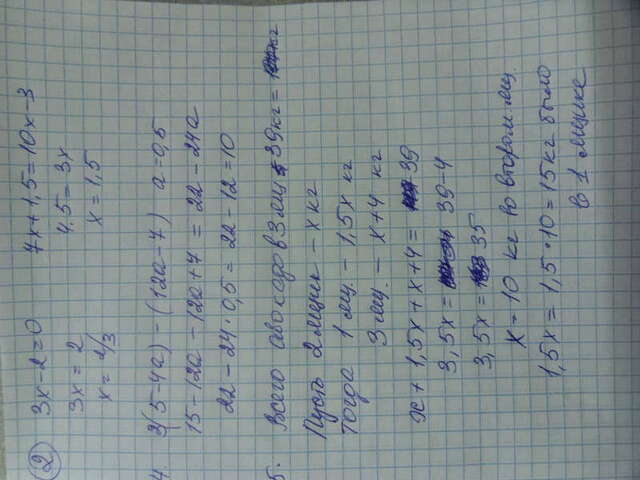 2
3x-2=0
3x=2
x=2/3
7x+1,5=10x-3
4,5=3x
x=1,5
4. 3(5-4a)-(12a-7) a=0,5
15-12a-12a+7=22-24a
22-24·0,5=22-12=10
5. Всего авокадо в 3 ящ 39кг=
Пусть 2 ящик - x кг
Тогда 1 ящ. - 1,5x кг
3 ящ. - x+4 кг
x+1,5x+x+4=39
3,5x=39-4
3,5x=35
x=10 кг во втором ящ.
1,5x=1,5·10=15кг было
в 1 ящике